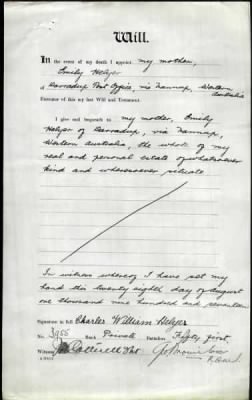 Will.
In the event of my death I appoint my mother,
Emily Helyer
of Barradup Post Office, via Nannup, Western
Australia
Executor of this my last Will and Testament.
I give and bequeath to my mother, Emily
Helyer of Barradup, via Nannup,
Western Australia, the whole of my
real and personal estate of whatsoever
kind and wheresoever situate
In witness whereof I have set my
hand the twenty eighth day of August
one thousand nine hundred and seventeen
Signature in full Charles William Helyer
No. 3955 Rank Private Battalion Fifty first.
Witness